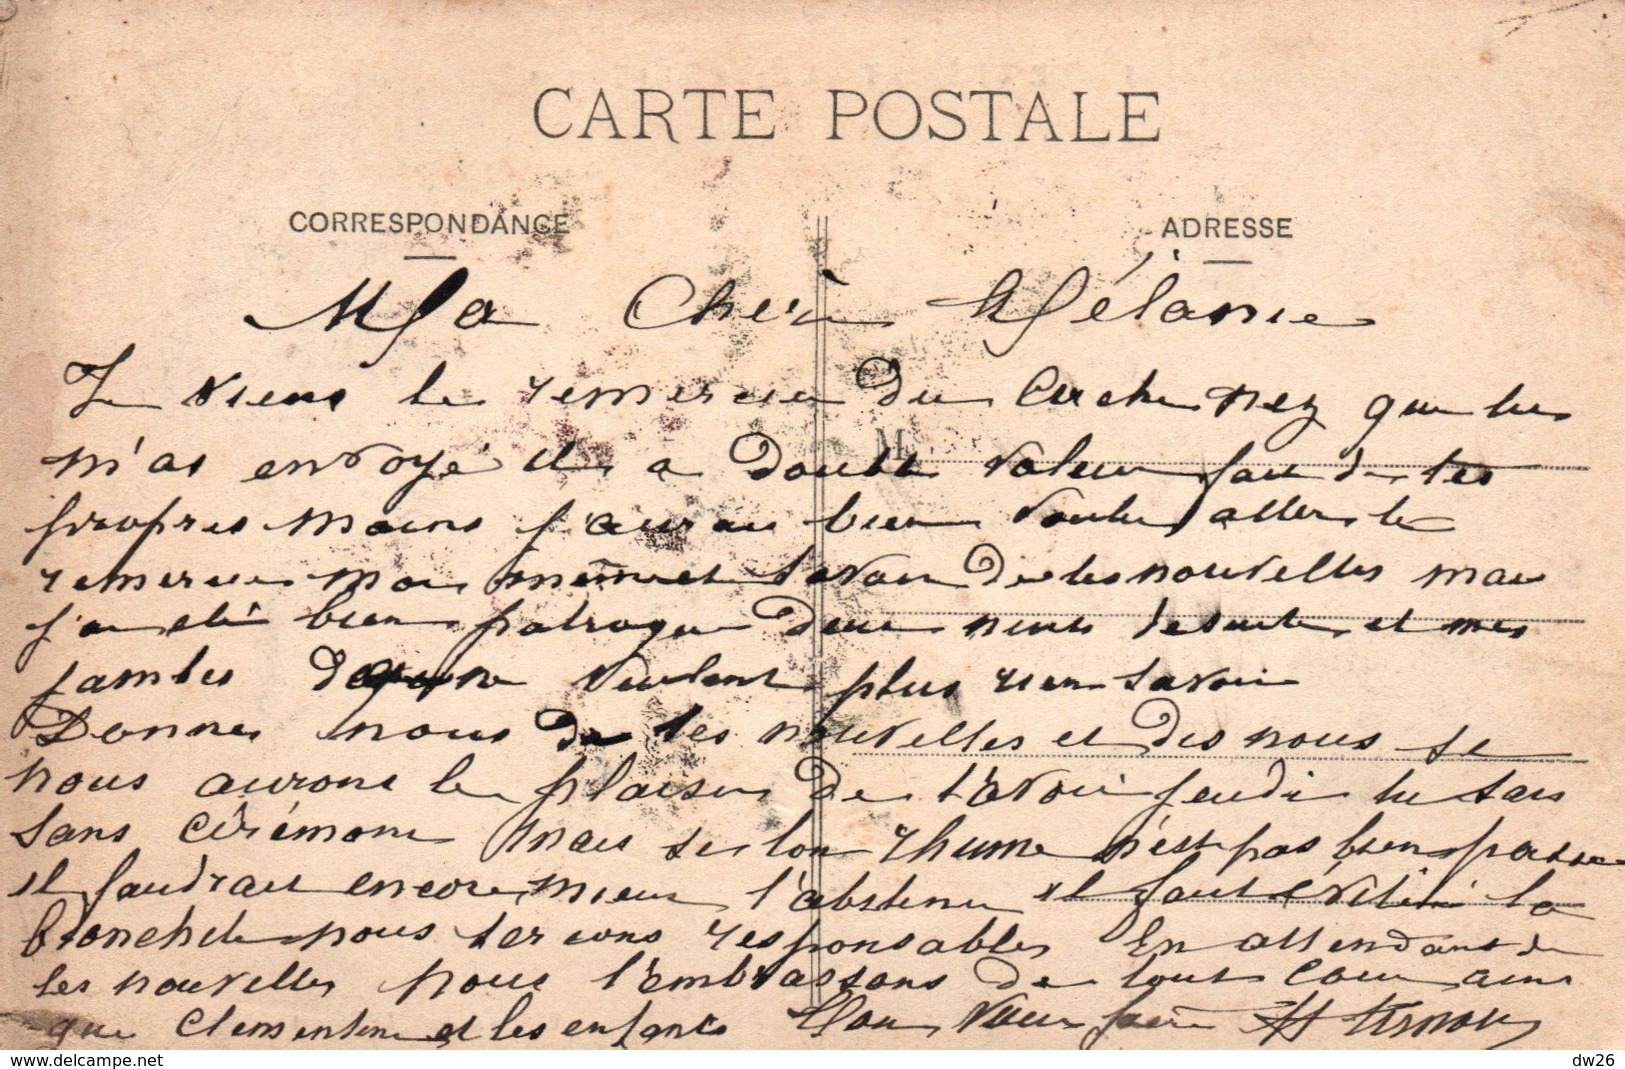 CARTE POSTALE
CORRESPONDANCE
ADRESSE
Ma Chère Mélanie
Je viens te remercier du cache nez que tu
M
m'as envoyé il a double valeur fait de tes
propres mains j'aurai bien voulu aller te
remercier moi même et savoir de tes nouvelles mais
j'ai été bien patraque deux nuits de suite et mes
jambes veulent plus rien savoir
Donnes nous de tes nouvelles et dis nous se
nous aurons le plaisir de t'avoir jeudi tu sais
sans cérémonie mais se ton rhume n'est pas bien passé
il faudrait encore mieux t'abstenir il faut éviter la
bronchite nous serions responsables En attendant de
tes nouvelles nous t'embrassons de tout coeur ainsi
que Clementine et les enfants Ton vieux frère
dw26